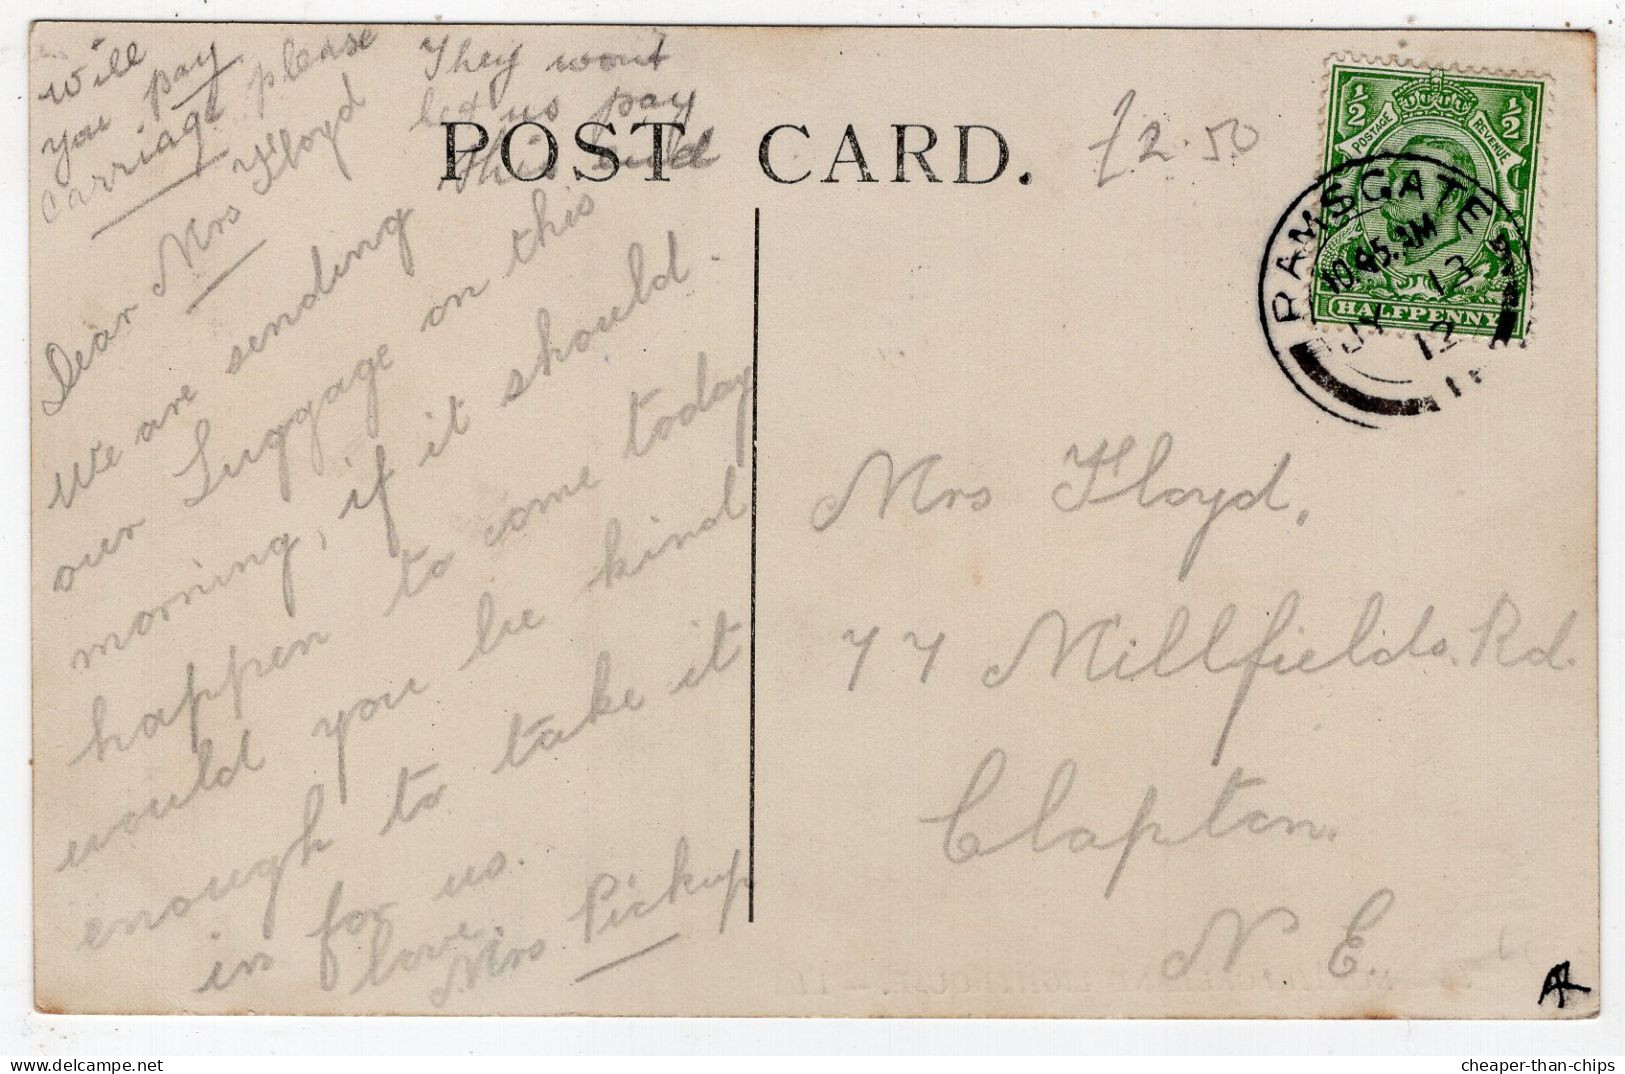 will
you pay
carriage please
They wont
let us pay
this end
POST CARD.
£2.50
Dear Mrs Floyd
We are sending
our Luggage on this
morning, if it should
happen to come today
would you be kind
enough to take it
in for us.
love.
Mrs Pickup
½ ½
POSTAGE REVENUE
HALFPENNY
RAMSGATE
AM
JY 13
12
Mrs Floyd.
77 Millfields Rd.
Clapton.
N. E.
cheaper-than-chips